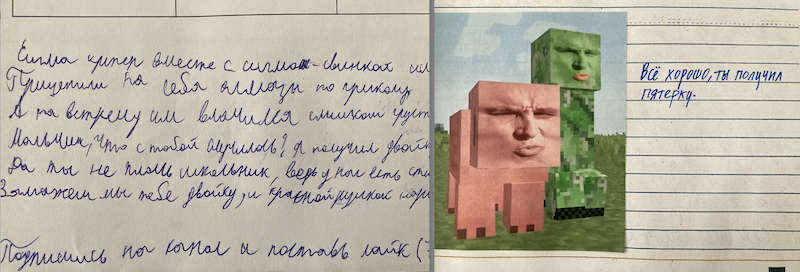 Сигма крипер вместе с сигмой-свинках
Прицепили на себя алмазы по приколу
А на встречу им влачился слишком груст
Мальчик, что с тобой случилось? Я получил двойк
Да ты не плачь школьник, ведь у нас есть сти
Замажем мы тебе двойку, и красной ручкой
Подпишись на канал и поставь лайк (
Всё хорошо, ты получил
пятерку.